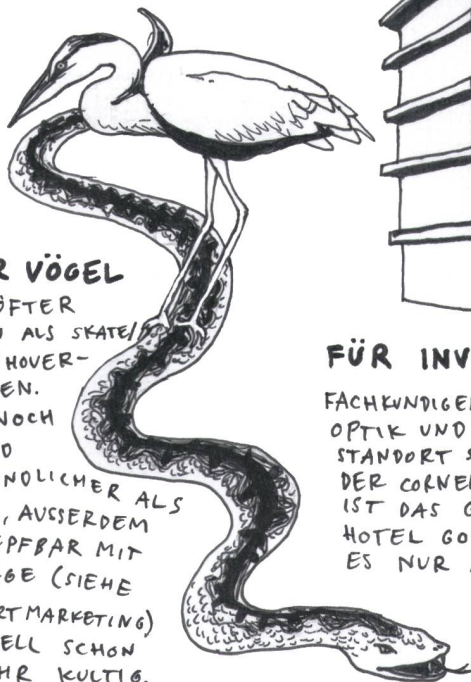 R VÖGEL
ÖFTER
ALS SKATE/
HOVER-
EN.
NOCH
D
NDLICHER ALS
, AUSSERDEM
PFBAR MIT
GE (SIEHE
RT MARKETING)
ELL SCHON
HR KULTIG.
FÜR INV
FACHKUNDIGE
OPTIK UND
STANDORT S
DER CORNE
IST DAS G
HOTEL GO
ES NUR